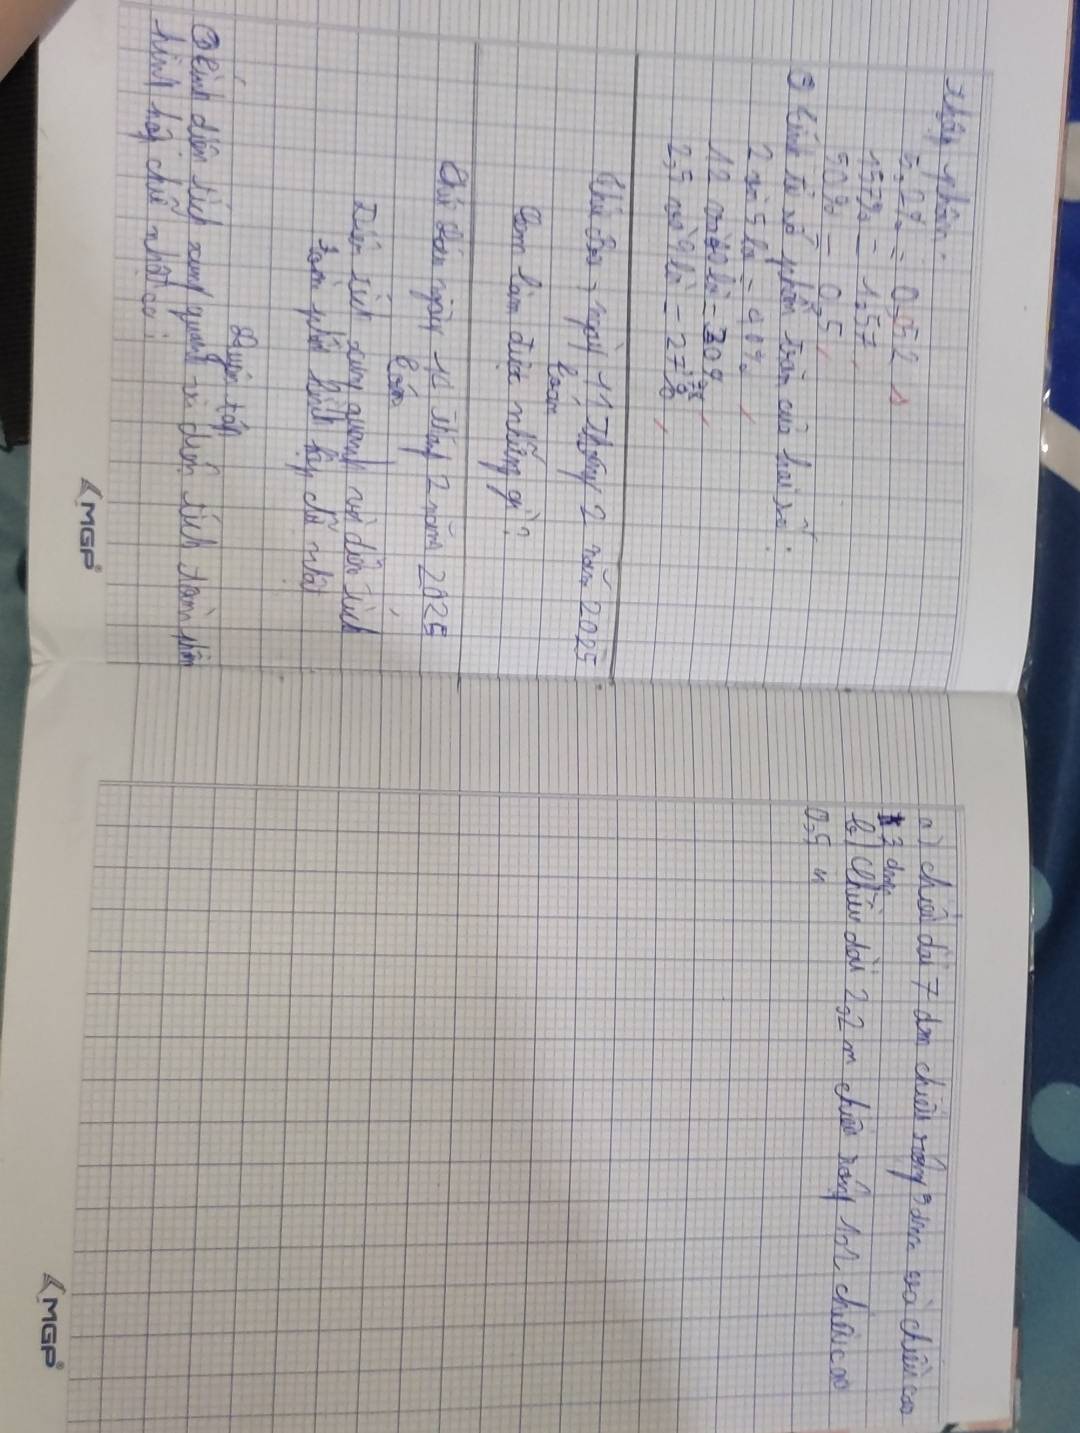 thập phân.
5,2% = 0,052
157% = 1,57
50% = 0,5
③ Tính tỉ số phần trăm của hai số.
2 và 5 là = 40%
12 và 40 là = 30%
2,5 và 9 là = 27%
Thứ ba, ngày 11 tháng 2 năm 2025
Toán
Em làm được những gì?
Thứ năm ngày 13 tháng 2 năm 2025
Toán
Diện tích xung quanh và diện tích
toàn phần hình hộp chữ nhật
Luyện tập
① Tính diện tích xung quanh và diện tích toàn phần
hình hộp chữ nhật có:
MGP
a) chiều dài 7 dm chiều rộng dm và chiều cao
3 dm
b) Chiều dài 2,2 m chiều rộng chiều cao
0,5
MGP